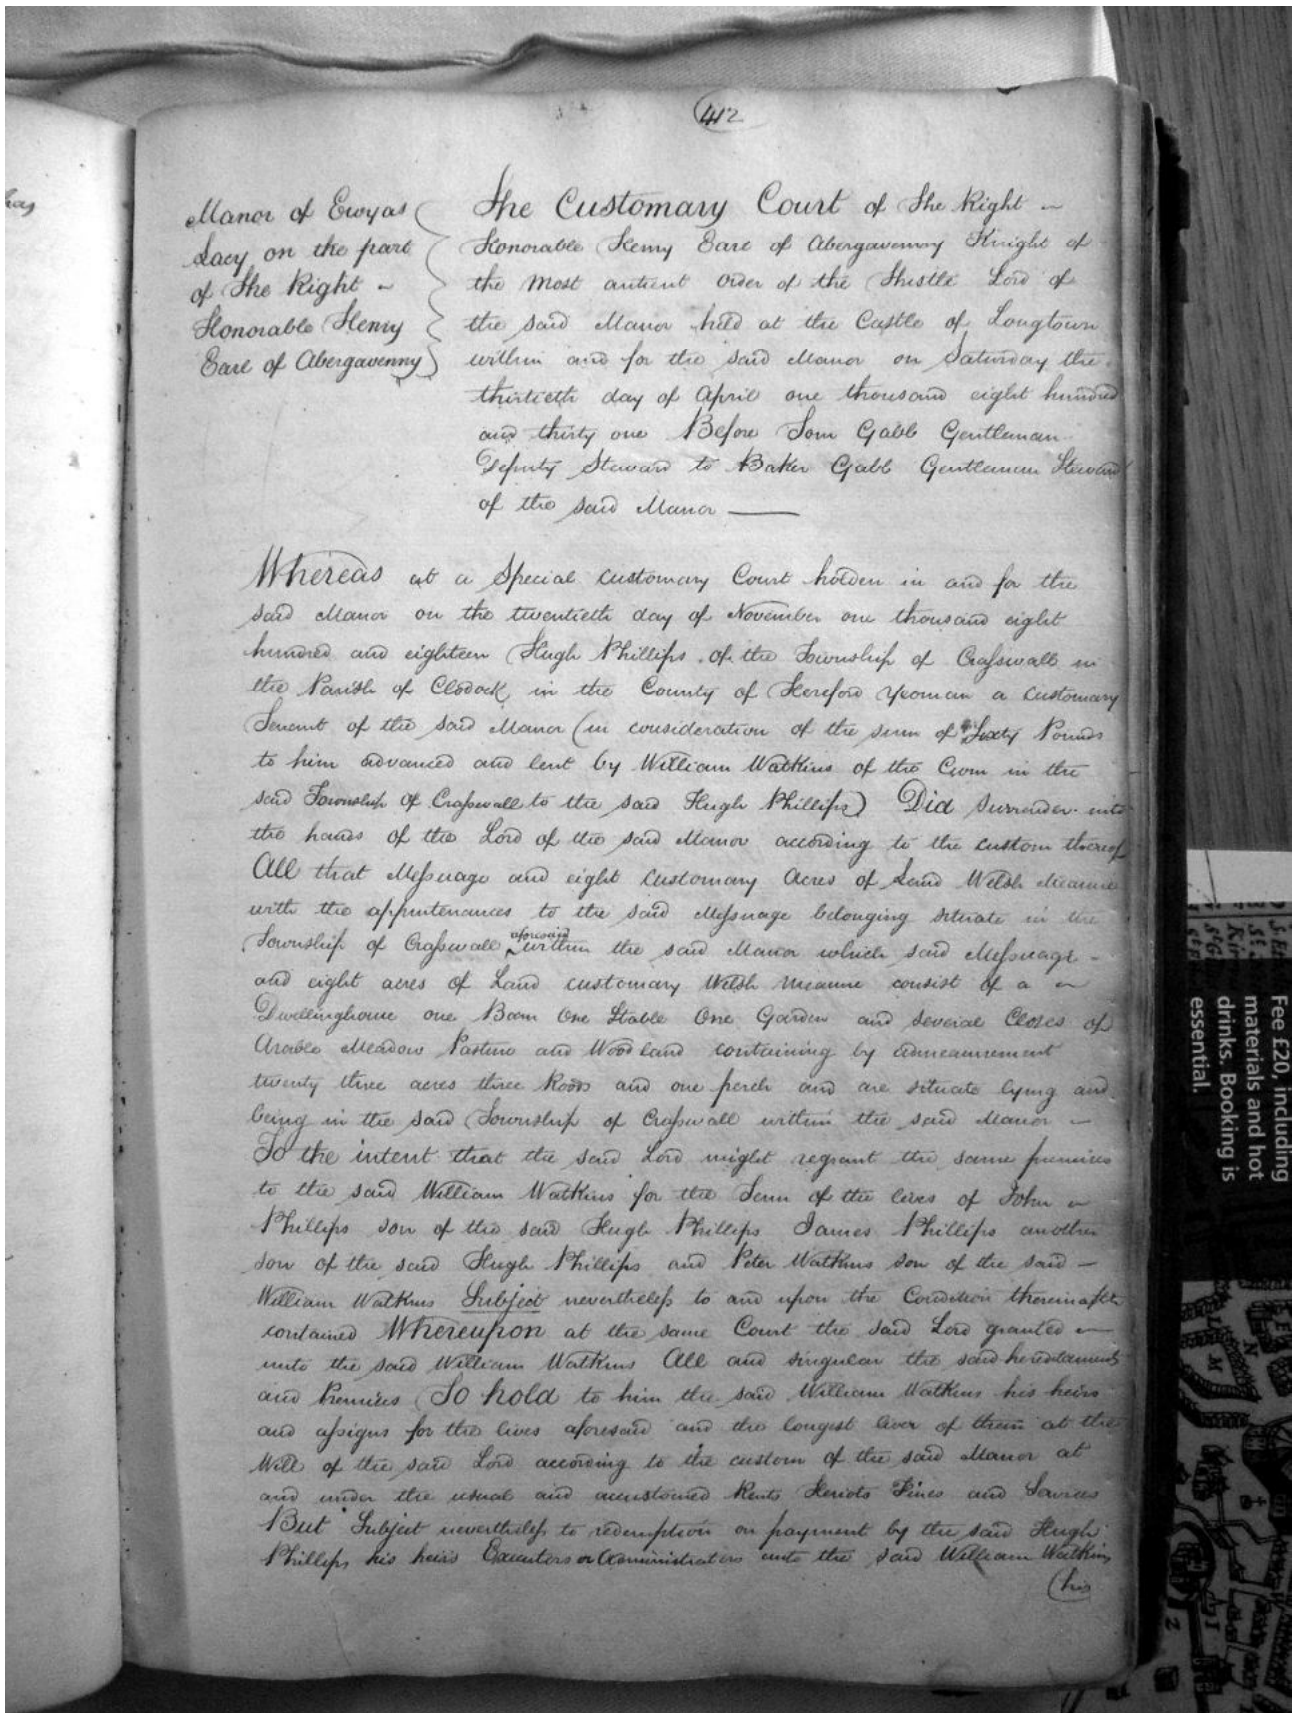 412
Manor of Ewyas
Lacy on the part
of The Right
Honorable Henry
Earl of Abergavenny
The Customary Court of The Right
Honorable Henry Earl of Abergavenny Knight of
the most antient order of the Thistle Lord of
the said Manor held at the Castle of Longtown
within and for the said Manor on Saturday the
thirtieth day of April one thousand eight hundred
and thirty one Before Tom Gabb Gentleman
Deputy Steward to Baker Gabb Gentleman Steward
of the said Manor
Whereas at a Special Customary Court holden in and for the
said Manor on the twentieth day of November one thousand eight
hundred and eighteen Hugh Phillips of the Township of Crasswall in
the Parish of Clodock in the County of Hereford Yeoman a customary
Tenant of the said Manor (in consideration of the sum of Sixty Pounds
to him advanced and lent by William Watkins of the Cwm in the
said Township of Crasswall to the said Hugh Phillips) Did surrender into
the hands of the Lord of the said Manor according to the custom thereof
All that Messuage and eight customary Acres of Land Welsh Measure
with the appurtenances to the said Messuage belonging situate in the
Township of Crasswall aforesaid within the said Manor which said Messuage
and eight acres of Land customary Welsh measure consist of a
Dwellinghouse one Barn One Stable One Garden and several Closes of
Arable Meadow Pasture and Woodland containing by admeasurement
twenty three acres three Roods and one perch and are situate lying and
being in the said Township of Crasswall within the said Manor
To the intent that the said Lord might regrant the same premises
to the said William Watkins for the Term of the lives of John
Phillips son of the said Hugh Phillips James Phillips another
son of the said Hugh Phillips and Peter Watkins son of the said
William Watkins Subject nevertheless to and upon the Condition thereinafter
contained Whereupon at the same Court the said Lord granted
unto the said William Watkins All and singular the said hereditaments
and Premises To hold to him the said William Watkins his heirs
and assigns for the lives aforesaid and the longest liver of them at the
Will of the said Lord according to the custom of the said Manor at
and under the usual and accustomed Rents Heriots Fines and Services
But Subject nevertheless to redemption on payment by the said Hugh
Phillips his heirs Executors or Administrators unto the said William Watkins
(his
Fee £20, including
materials and hot
drinks. Booking is
essential.